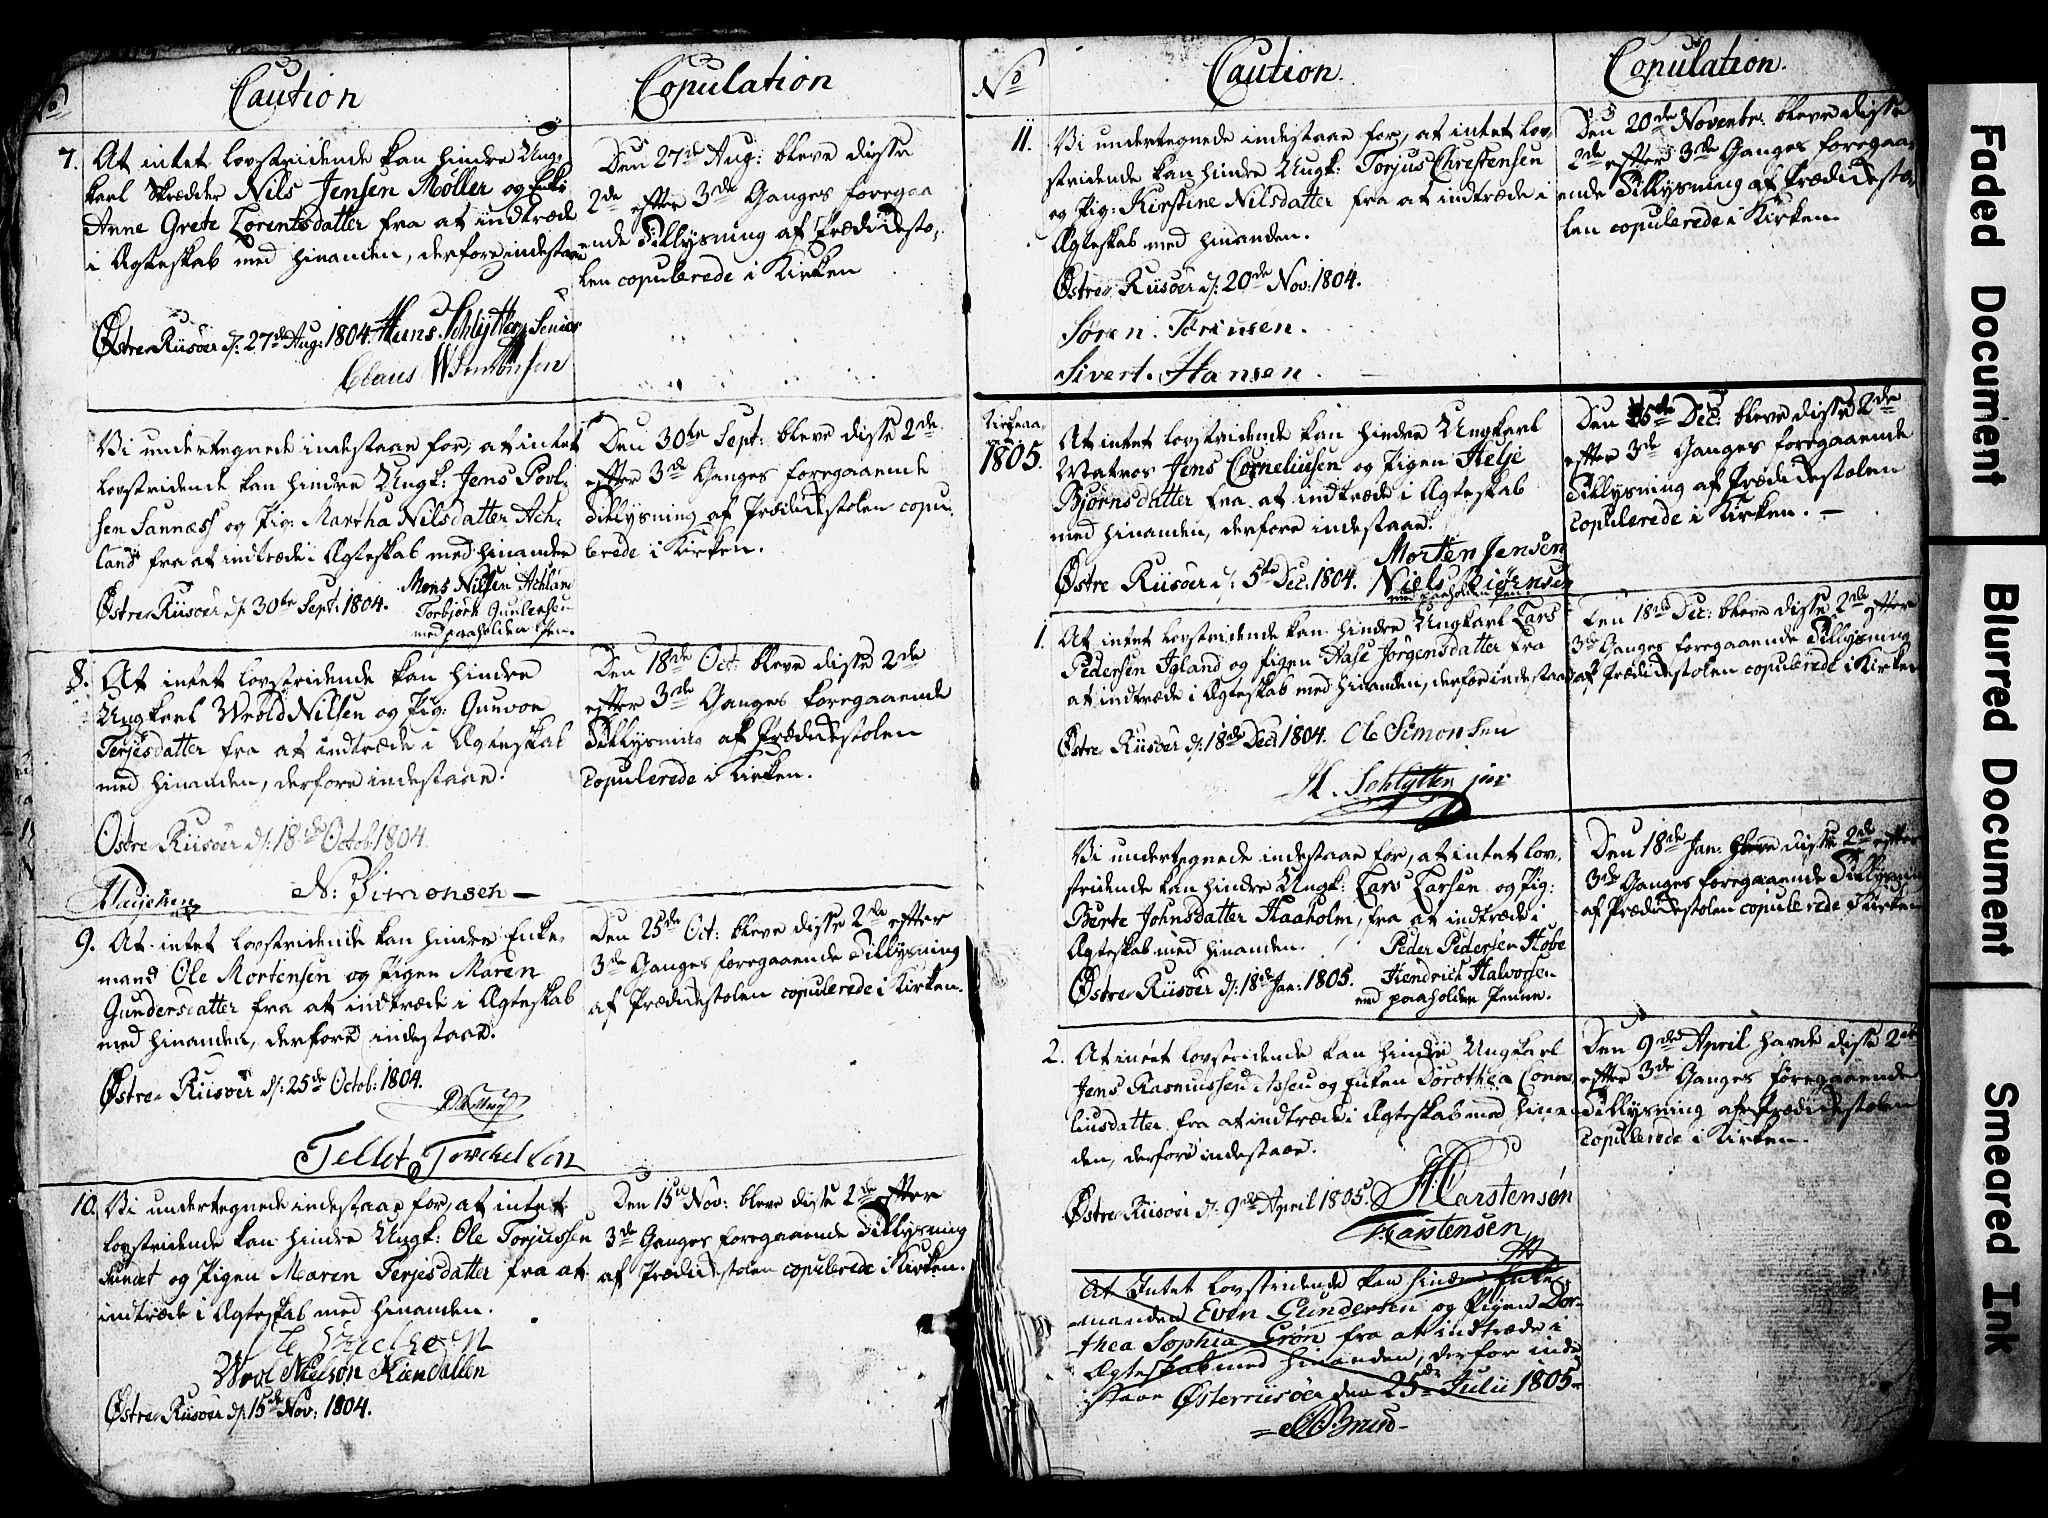 No
Caution
Copulation
7. At intet lovstridende kan hindre Ung-
karl Skrædder Nils Jensen Møller og Enke
Anne Grete Lorentsdatter fra at indtræde
i Ægteskab med hinanden, derfore indestaae
Østre Riisøer d: 27de Aug: 1804. Hans Schlytter Senior
Claus W Simonsen
Den 27de Aug: bleve disse
2de efter 3de Ganges foregaa
ende Tillysning af Prædikesto-
len copulerede i Kirken
Vi undertegnede indestaae for, at intet
lovstridende kan hindre Ungk: Jens Povl-
sen Sannæss og Pig: Martha Nilsdatter Ach-
land fra at indtræde i Ægteskab med hinanden
Østre Riisøer d: 30te Sept: 1804. Mons Nilsen Achland
Torbjörn Gunlersen
med paaholden Pen.
Den 30te Sept: bleve disse 2de
efter 3de Ganges foregaaende
Tillysning af Prædikestolen copu-
lerede i Kirken.
8. At intet lovstridende kan hindre
Ungkarl Wrold Nilsen og Pig: Gunvor
Terjesdatter fra at indtræde i Ægteskab
med hinanden, derfore indestaae.
Østre Riisøer d: 18de Octob: 1804.
N: Simonsen
Den 18de Oct: bleve disse 2de
efter 3de Ganges foregaaende
Tillysning af Prædikestolen
copulerede i Kirken.
9. At intet lovstridende kan hindre Enke-
mand Ole Mortensen og Pigen Maren
Gundersdatter fra at indtræde i Ægteskab
med hinanden, derfore indestaae.
Østre Riisøer d: 25de Octob: 1804.
Tellef Torchelsen
Den 25de Oct: bleve disse 2de efter
3de Ganges foregaaende Tillysning
af Prædikestolen copulerede i Kirken.
10. Vi undertegnede indestaae for, at intet
lovstridende kan hindre Ungk: Ole Torjussen
Sundet og Pigen Maren Terjesdatter fra at
indtræde i Ægteskab med hinanden.
Wrol Nielsøn Kiendallen
Østre Riisøer d: 15de Nov: 1804.
Den 15de Nov: bleve disse 2de efter
3de Ganges foregaaende Tillysning
af Prædikestolen copulerede i Kirken.
No
Caution.
Copulation.
11. Vi undertegnede indestaae for, at intet lov-
stridende kan hindre Ungk: Torjus Chrestensen
og Pig: Kirstine Nilsdatter fra at indtræde i
Ægteskab med hinanden.
Østre Riisøer d: 20de Nov: 1804.
Søren. Toriusen.
Sivert. Hansen.
Den 20de Novembr. bleve disse
2de efter 3de Ganges foregaa-
ende Tillysning af Prædikesto-
len copulerede i Kirken.
Kirkeaa-
1805.
At intet lovstridende kan hindre Ungkarl
Matros Jens Corneliusen og Pigen Helje
Bjørnsdatter fra at indtræde i Ægteskab
med hinanden, derfore indestaae.
Østre Riisøer d: 5te Dec: 1804. Morten Jensen
Niels Biørnsen
med paaholden Pen.
Den 5te Dec: bleve disse 2de
efter 3de Ganges foregaaende
Tillysning af Prædikestolen
copulerede i Kirken. —
1. At intet lovstridende kan hindre Ungkarl Lars
Pedersen Igland og Pigen Aase Jørgensdatter fra
at indtræde i Ægteskab med hinanden, derfore indestaae
Østre Riisøer d: 18de Dec: 1804. Ole Simonsen
H. Schlytter jun:
Den 18de Dec: bleve disse 2de efter
3de Ganges foregaaende Tillysning
af Prædikestolen copulerede i Kirken
Vi undertegnede indestaae for, at intet lov-
stridende kan hindre Ungk: Lars Larsen og Pig:
Berte Johnsdatter Haaholm, fra at indtræde i
Ægteskab med hinanden. Peder Pedersen Hobe
Østre Riisøer d: 18de Jan: 1805. Hendrich Halvorsen
med paaholden Penne.
Den 18de Jan: bleve disse 2de efter
3de Ganges foregaaende Tillysning
af Prædikestolen copulerede i Kirken
2. At intet lovstridende kan hindre Ungkarl
Jens Rasmussen Assen og Enken Dorothea Corne-
liusdatter fra at indtræde i Ægteskab med hinan-
den, derfore indestaae.
Østre Riisøer d: 9de April 1805. H Carstensøn
Karstensen
Den 9de April havde disse 2de
efter 3de Ganges foregaaende
Tillysning af Prædikestolen
copulerede i Kirken.
At Intet lovstridende kan hindre Enke-
manden Even Gundersen og Pigen Dor-
thea Sophia Grøn fra at indtræde i
Ægteskab med hinanden, derfor inde
staae Østerriisøer den 25de Julii 1805
Faded Document
Blurred Document
Smeared Ink